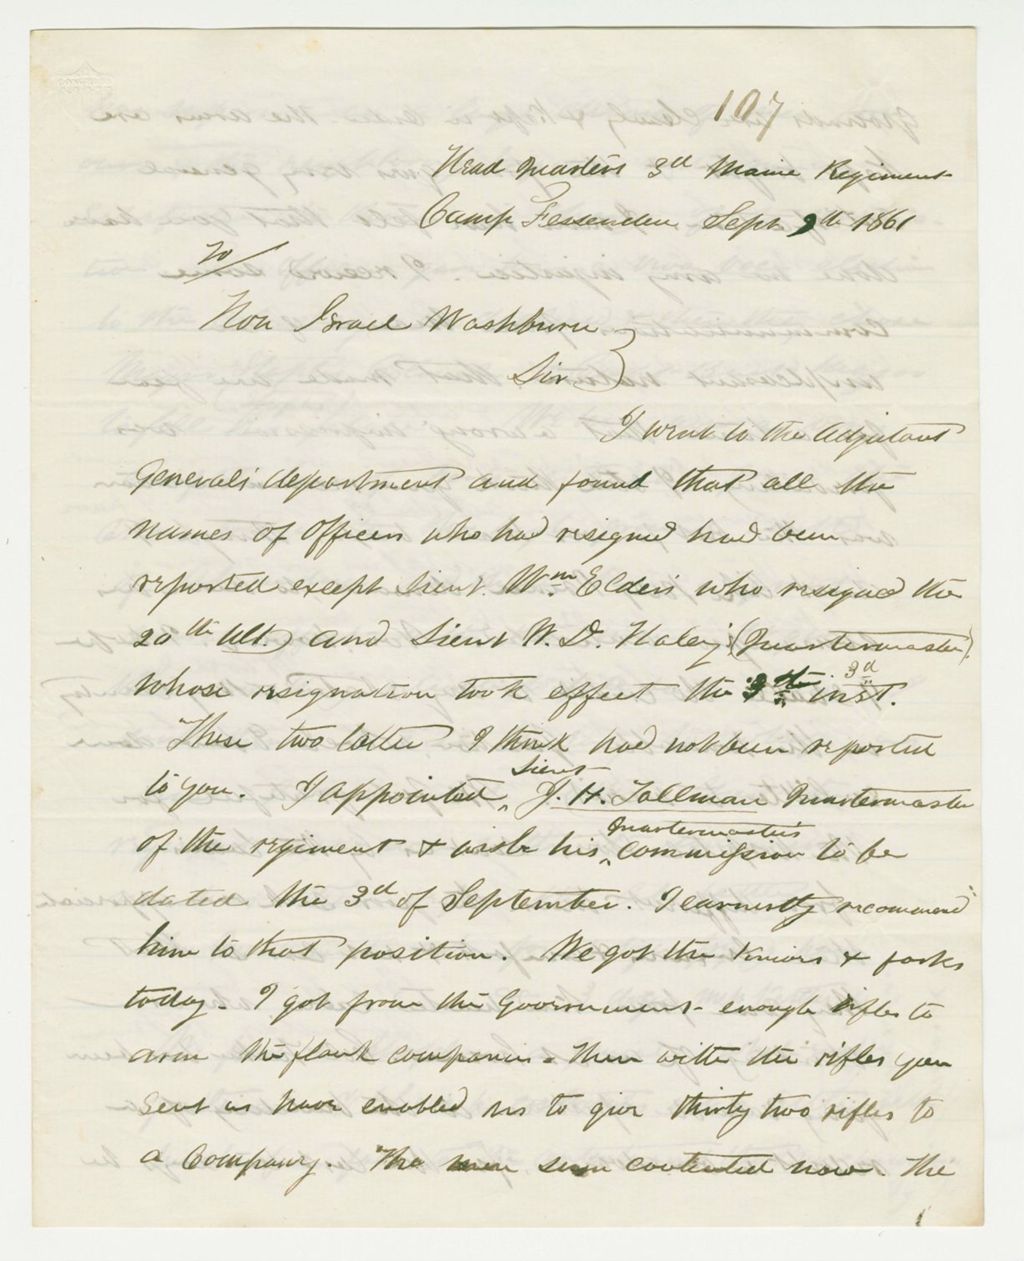 107
Head Quarters 3d Maine Regiment
Camp Fessenden Sept 9th 1861
To
Hon Israel Washburn
Sir
I went to the Adjutant
Generals department and found that all the
names of Officers who had resigned had been
reported except Lieut. Wm. Elders who resigned the
20th Ult.) and Lieut W. D. Haley (Quartermaster)
3d
whose resignation took effect the inst.
These two latter I think had not been reported
Lieut
to you. I appointed ^ J. H. Tallman Quartermaster
Quartermasters
of the regiment & wish his ^ commission to be
dated the 3d of September. I earnestly recommend
him to that position. We got the Knives & forks
today. I got from the Government enough rifles to
arm the flank companies. Them with the rifles you
sent us have enabled us to give thirty two rifles to
a Company. The men seem contented now. The